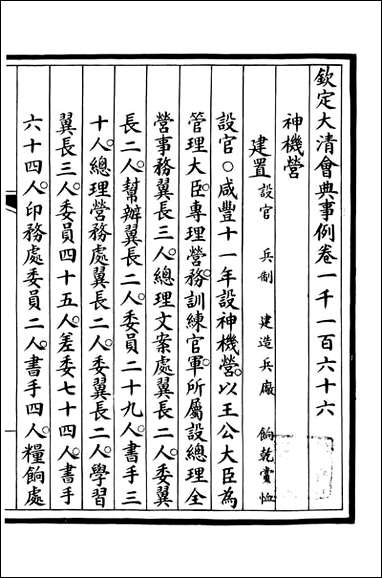 欽定大清會典事例卷一千一百六十六
神機營
建置設官 兵制 建造兵廠 餉乾賞恤
設官○咸豐十一年設神機營以王公大臣為
管理大臣專理營務訓練官軍所屬設總理全
營事務翼長三人總理文案處翼長二人委翼
長二人幫辦翼長二人委員二十九人書手三
十人總理營務處翼長二人委翼長二人學習
翼長三人委員四十五人差委七十四人書手
六十四人印務處委員二人書手四人糧餉處